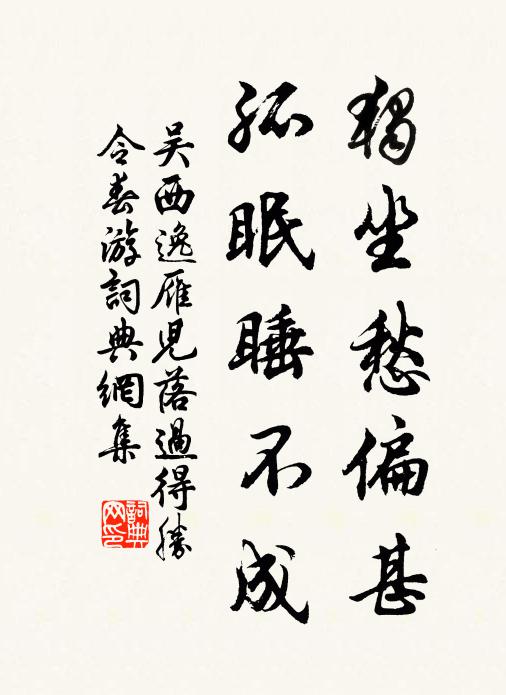 獨坐愁偏甚
孤眠睡不成
吴西逸雁児落過得勝
令春游詞典網集
詞典网印